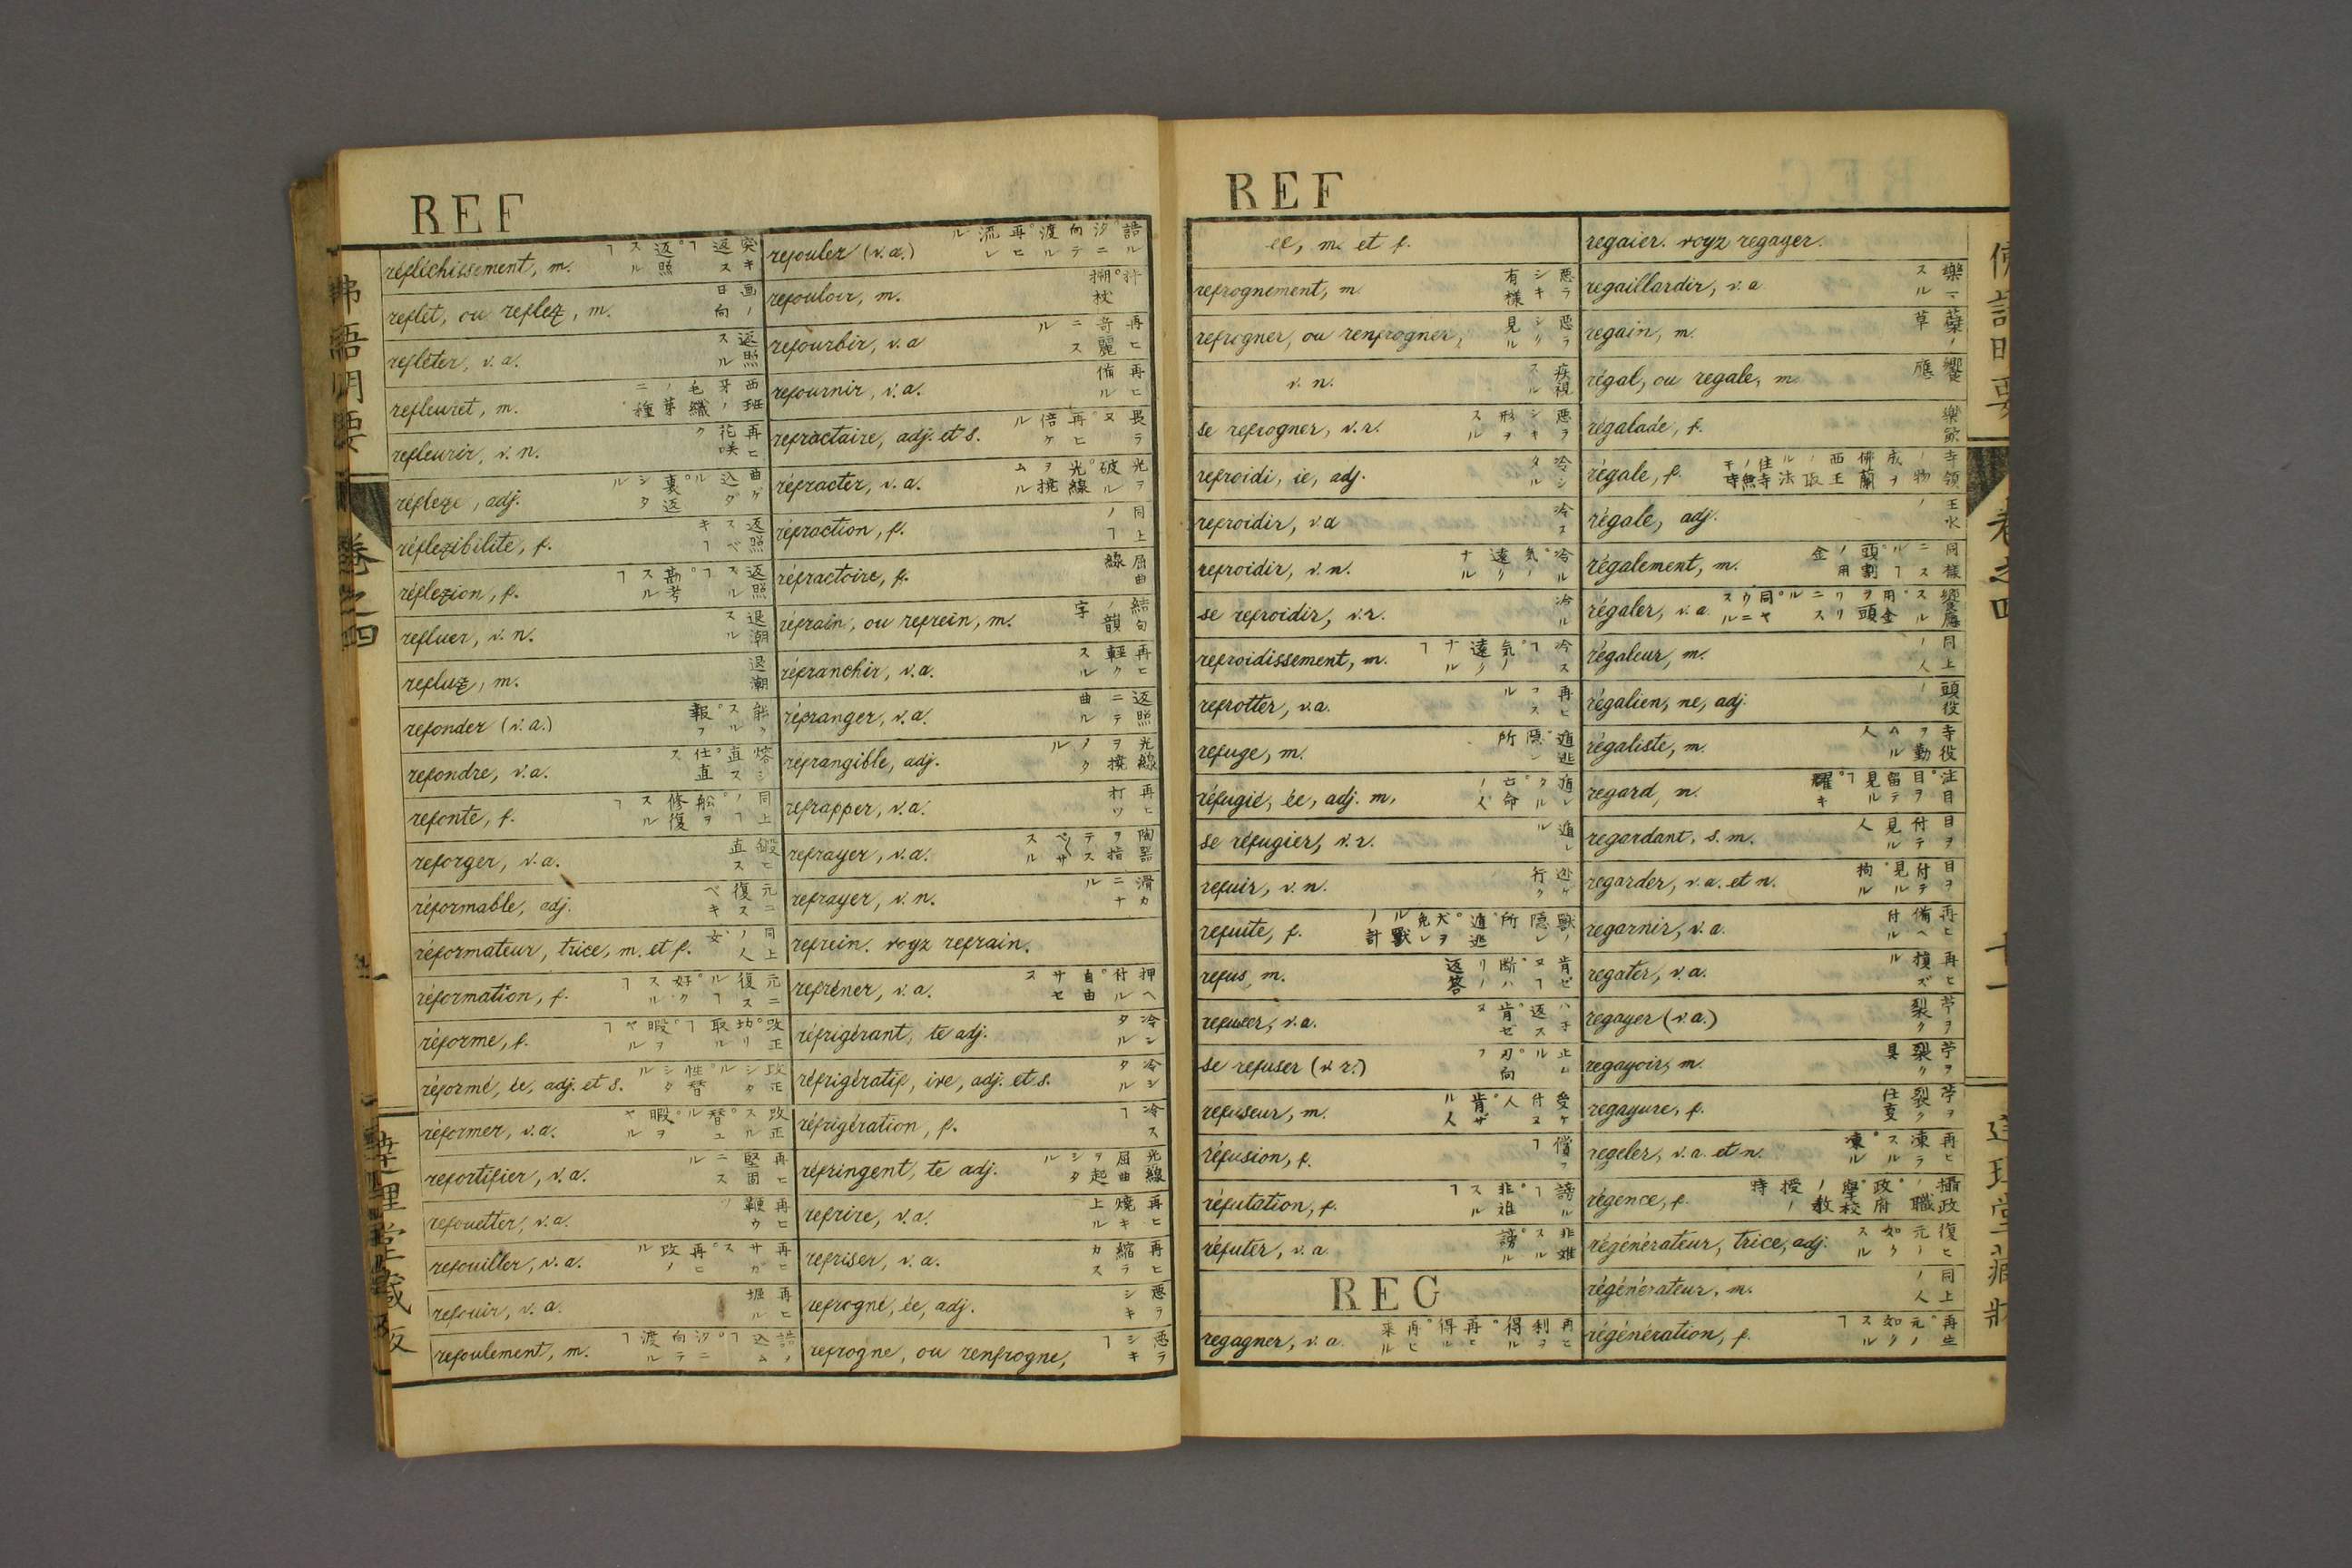 REF
réfléchissement, m. 突キ返ス㇕。返照スル㇕
reflet, ou reflex, m. 画ノ日向
refléter, v. a. 返照スル
refleuret, m. 西班牙ノ毛織ノ第二種
refleurir, v. n. 再ヒ花咲ク
réflexe, adj. 曲ゲ込ダル。裏返シタル
réflexibilité, f. 返照スベキ㇕
réflexion, f. 返照スル㇕。勘考スル㇕
refluer, v. n. 退潮スル
reflux, m. 退潮
refonder (v. a.)
refondre, v. a. 熔シ直ス。仕直ス
refonte, f. 同上ノ㇕。船ヲ修復スル㇕
reforger, v. a. 鍛ヒ直ス
réformable, adj. 元ニ復スベキ
réformateur, trice, m. et f. 同上ノ人。女
réformation, f. 元ニ復スル㇕。好クスル㇕
réforme, f. 改正。坊取リ㇕。暇ヲヤル㇕
réformé, ée, adj. et s. 改正シタル。性替シタル
réformer, v. a. 改正スル。替ユル。暇ヲヤル
refortifier, v. a. 再ヒ堅固ニスル
refouetter, v. a. 再ヒ鞭ウツ
refouiller, v. a. 再ヒサガス。再ヒ改ル
refouir, v. a. 再ヒ堀ル
refoulement, m. 詰メ込ム㇕。汐ニ向テ渡ル㇕
refouler (v. a.) 詰ル。汐ニ向テ渡ル。再ヒ流レル
refouloir, m.
refourbir, v. a 再ヒ奇麗ニスル
refournir, v. a. 再ヒ備ル
refractaire, adj. et s.
réfracter, v. a. 光ヲ破ル。光線ヲ撓ル
réfraction, f. 同上ノ㇕
réfractoire, f. 屈曲線
réfrain, ou refrein, m. 結句ノ韻字
réfranchir, v. a. 再ヒ軽クスル
réfranger, v. a. 返照ニテ曲ル
réfrangible, adj. 光線ヲ撓
refrapper, v. a. 再ヒ打ツ
refrayer, v. a. 陶器ヲ指
refrayer, v. n. 滑カニナル
refrein. voyz refrain.
refréner, v. a. 押ヘ付ル。自由サセス
réfrigérant, te adj. 冷シタル
réfrigératif, ive, adj. et s. 冷シタル
réfrigération, f. 冷ス㇕
réfringent, te adj. 光線屈曲ヲ起シタル
refrire, v. a. 再ヒ焼キ上ル
refriser, v. a. 再ヒ縮ラカス
refrogné, ée, adj. 悪ラシキ
refrogne, ou renfrogne, 悪ラシキ㇕
弗語明要
巻之四
達理堂蔵版
REF
ee, m. et f.
refrognement, m. 悪ラシキ有様
refrogner, ou renfrogner, 悪ラシク見ル
v. n. 疾視スル
se refrogner, v. r. 悪ラシキ形ヲスル
refroidi, ie, adj. 冷シタル
refroidir, v. a 冷ス
refroidir, v. n. 冷ル。気ノ遠クナル
se refroidir, v. r. 冷ル
refroidissement, m. 冷ス㇕。気ノ遠クナル㇕
refrotter, v. a. 再ヒコスル
refuge, m. 遁逃。隠シ所
réfugié, ée, adj. m. 遁レタル。亡命ノ人
se réfugier, v. r. 遁レル
refuir, v. n. 逃ケ行ク
refuite, f. 獣ノ隠レ所。遁逃。犬ヲ免レル獣ノ計
refus, m. 肯ゼヌ㇕。断ハリノ返答
refuser, v. a. ハネ返ス。肯ゼヌ
se refuser (v. r.) 止ムル。刃向フ
refuseur, m. 受ケ付ヌ人。肯ザル人
réfusion, f. 償フ㇕
réfutation, f. 謗ル㇕。非难スル㇕
réfuter, v. a. 非难スル。謗ル
REG
regagner, v. a. 再ヒ利ヲ得ル。再ヒ得ル。再ヒ来ル
regaier. voyz regayer.
regaillardir, v. a 樂マスル
regain, m.
régal, ou regale, m. 饗應
régalade, f.
régale, f.
régale, adj. 王水ノ
régalement, m. 同様ニスル㇕。頭割ノ用金
régaler, v. a. 饗應スル。
régaleur, m. 同上ノ人
régalien, ne, adj. 頭役ノ
régaliste, m. 寺役ヲ勤ムル人
regard, m. 注目。目ヲ留テ見ル㇕。
regardant, s. m. 目ヲ付テ見ル人
regarder, v. a. et n. 目ヲ付テ見ル。拘ル
regarnir, v. a. 再ヒ備ヘ付ル
regater, v. a. 再ヒ損ズル
regayer (v. a.) 苧ヲ裂ク
regayoir, m. 苧ヲ裂ク具
regayure, f. 苧ヲ裂ク仕変
regeler, v. a. et n. 再ヒ凍ラスル。凍ル
régence, f. 攝政ノ職。政府。學校ノ教授ノ時
régénérateur, trice, adj. 復ヒ元ノ如クスル
régénérateur, m. 同上ノ人
régénération, f. 再生。元ノ如クスル㇕